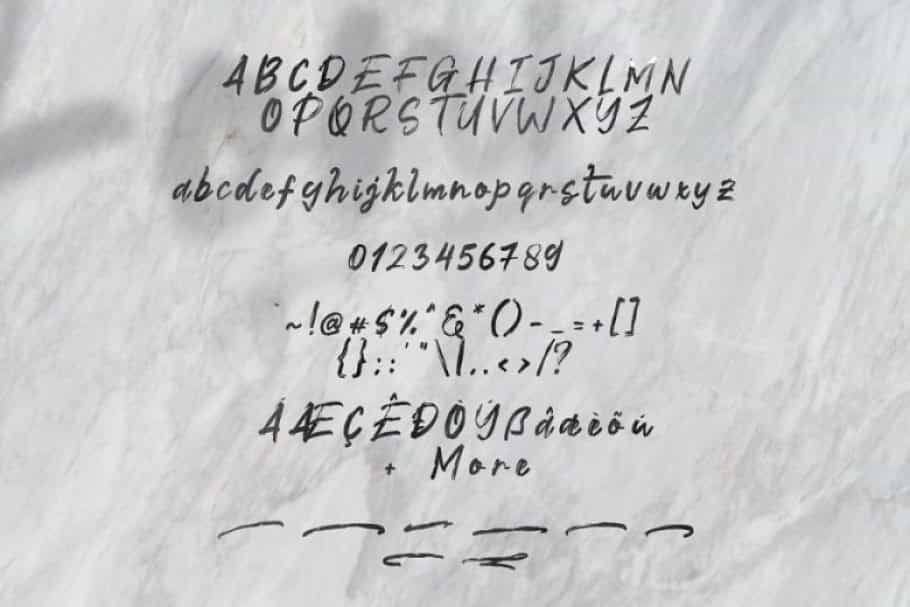 ABCDEFGHIJKLMN
OPQRSTUVWXYZ
abcdefghijklmnopqrstuvwxyz
0123456789
`~!@#$%^&*()-_=+[]
{};:'"\|,.<>/?
ÁÆÇÊÐÒÝßâæèõú
+ More